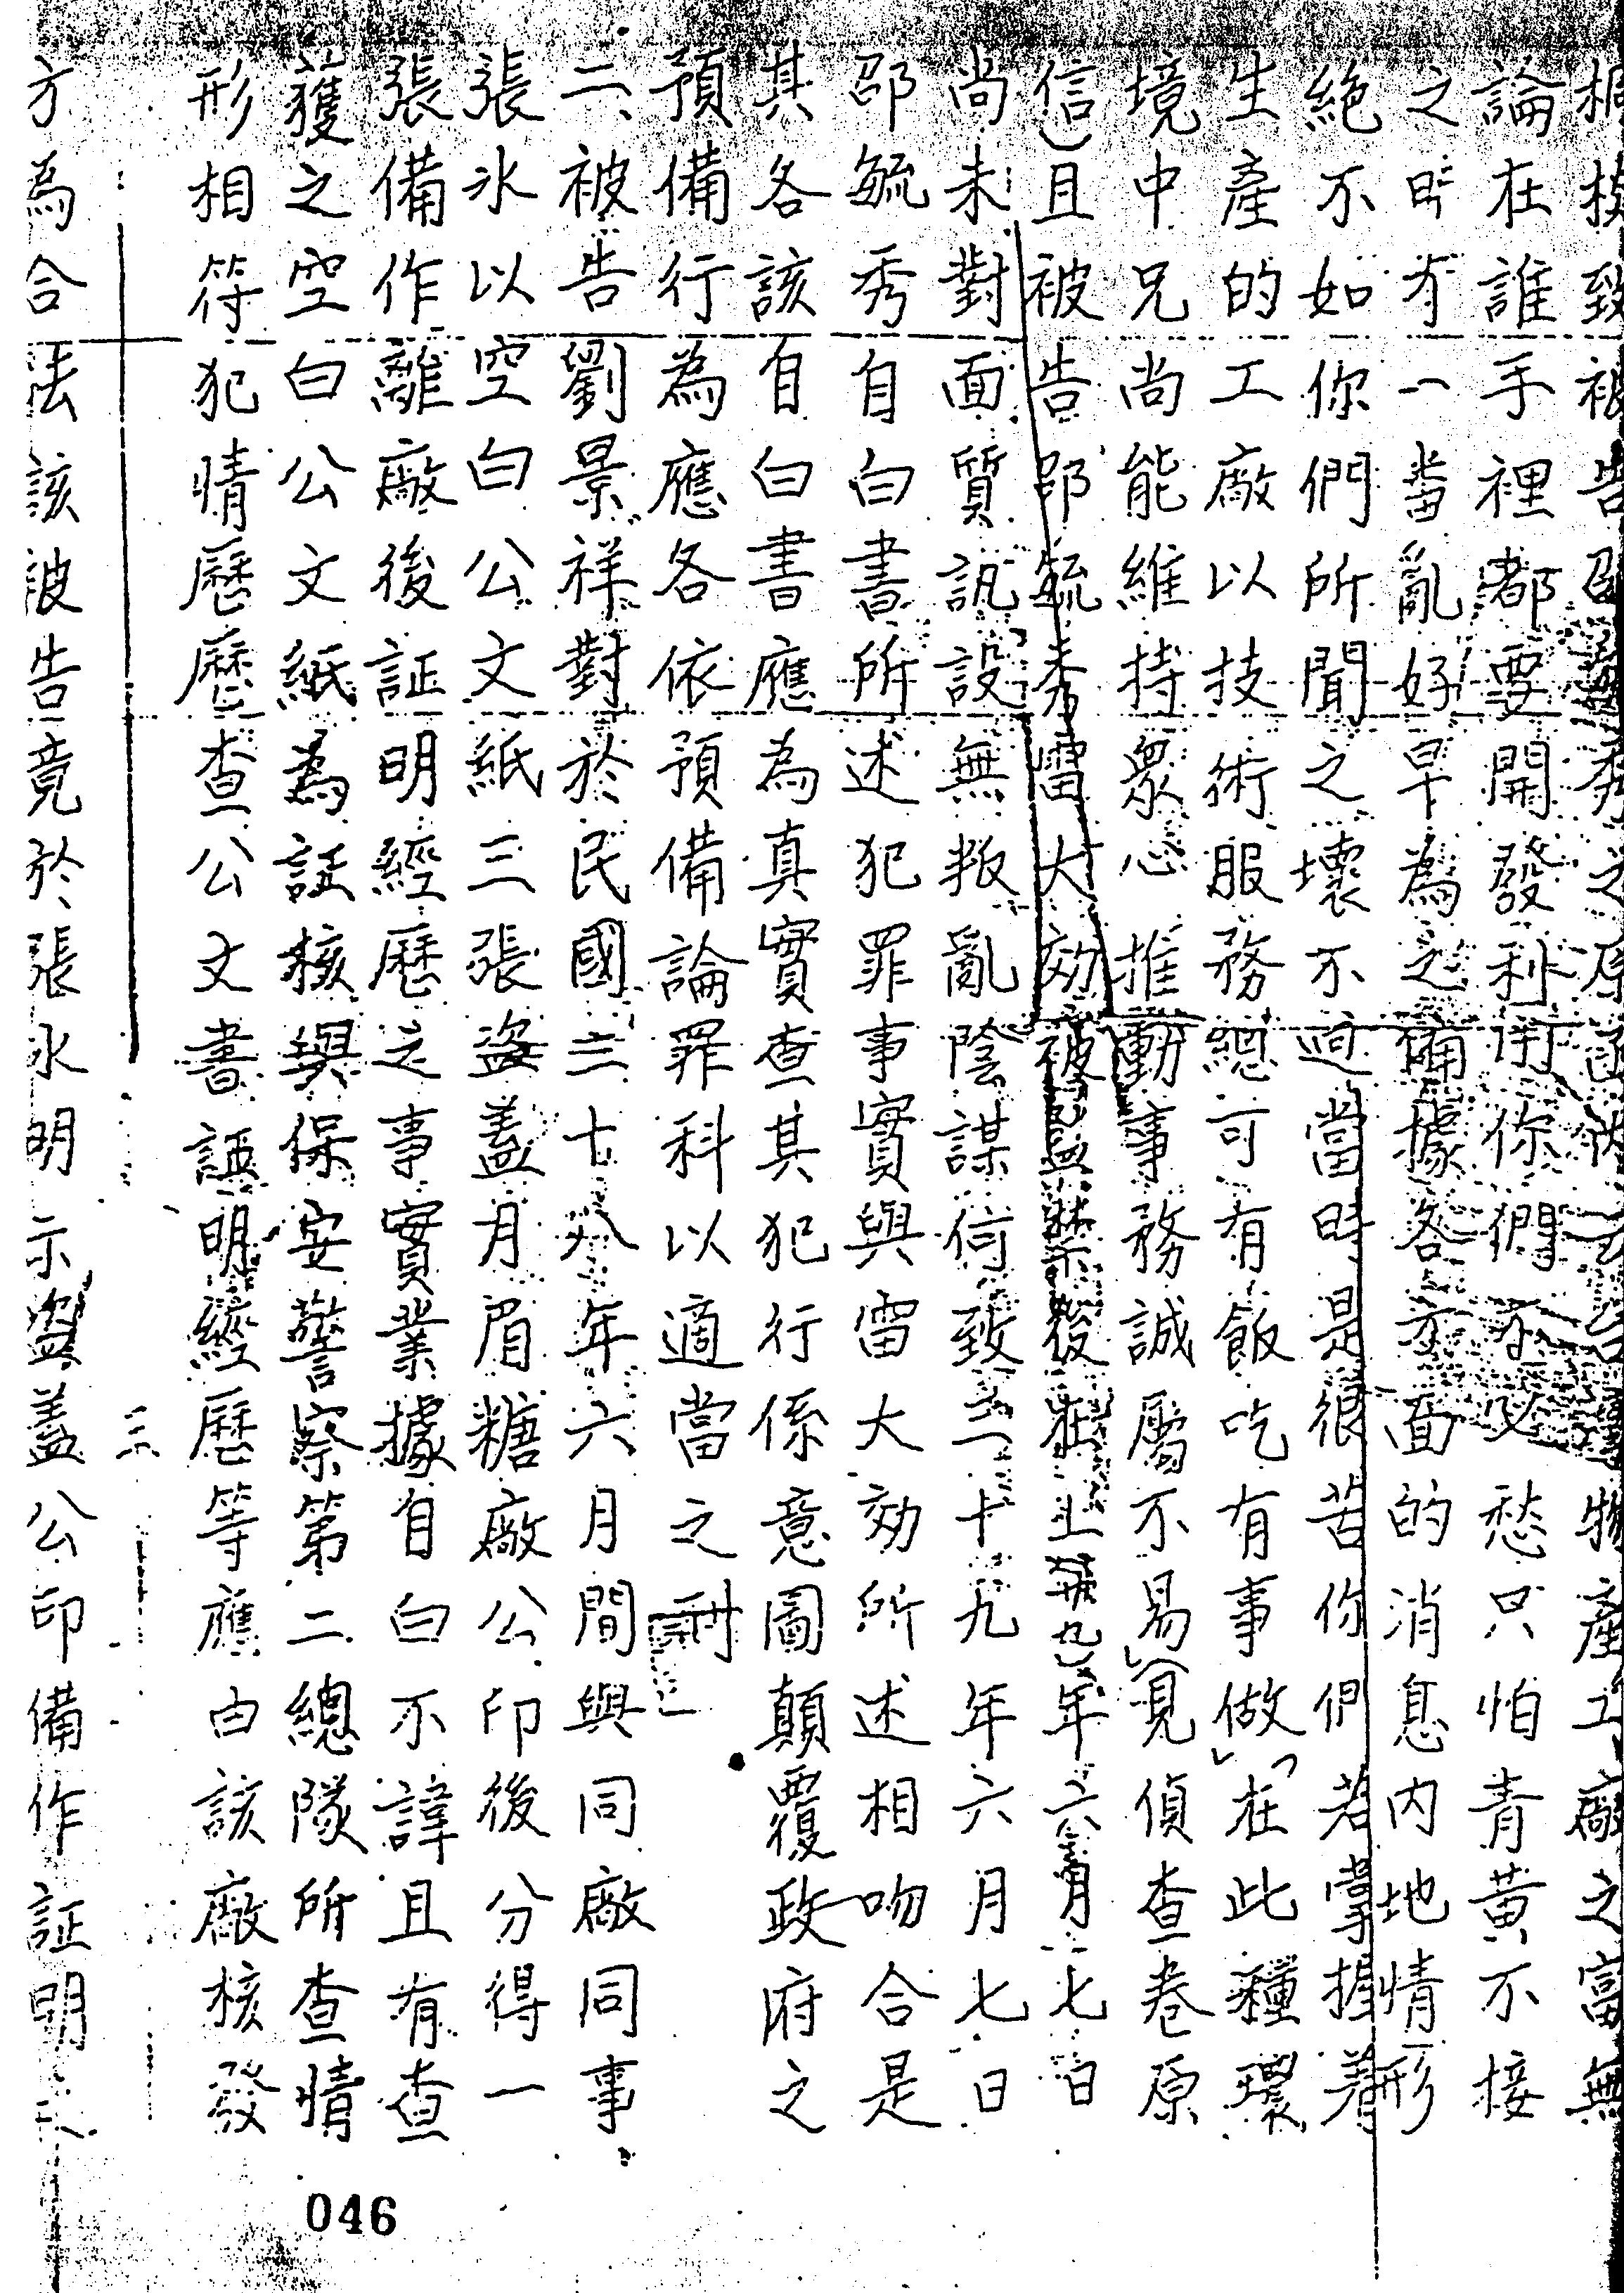 核致被告邵毓秀之原函
物產工廠之富無
論在誰手裡都要開發利用你們不必愁只怕青黃不接
之時有一當亂好早為之備據各方面的消息內地情形
絕不如你們所聞之壞不過當時是很苦你們若掌握着
生產的工廠以技術服務總可有飯吃有事做」「在此種環
境中兄尚能維持眾心推動事務誠屬不易」(見偵查卷原
信)且被告邵毓秀雷大効被監禁後在卅九年六月七日
尚未對面質訊設無叛亂陰謀何致三十九年六月七日
邵毓秀自白書所述犯罪事實與雷大効所述相吻合是
其各該自白書應為真實查其犯行係意圖顛覆政府之
預備行為應各依預備論罪科以適當之刑
二、被告劉景祥對於民國三十八年六月間與同廠同事
張水以空白公文紙三張盜蓋月眉糖廠公印後分得一
張備作離廠後証明經歷之事實業據自白不諱且有查
獲之空白公文紙為証核與保安警察第二總隊所查情
形相符犯情歷歷查公文書証明經歷等應由該廠核發
方為合法該被告竟於張水明示盜蓋公印備作証明之
三
046